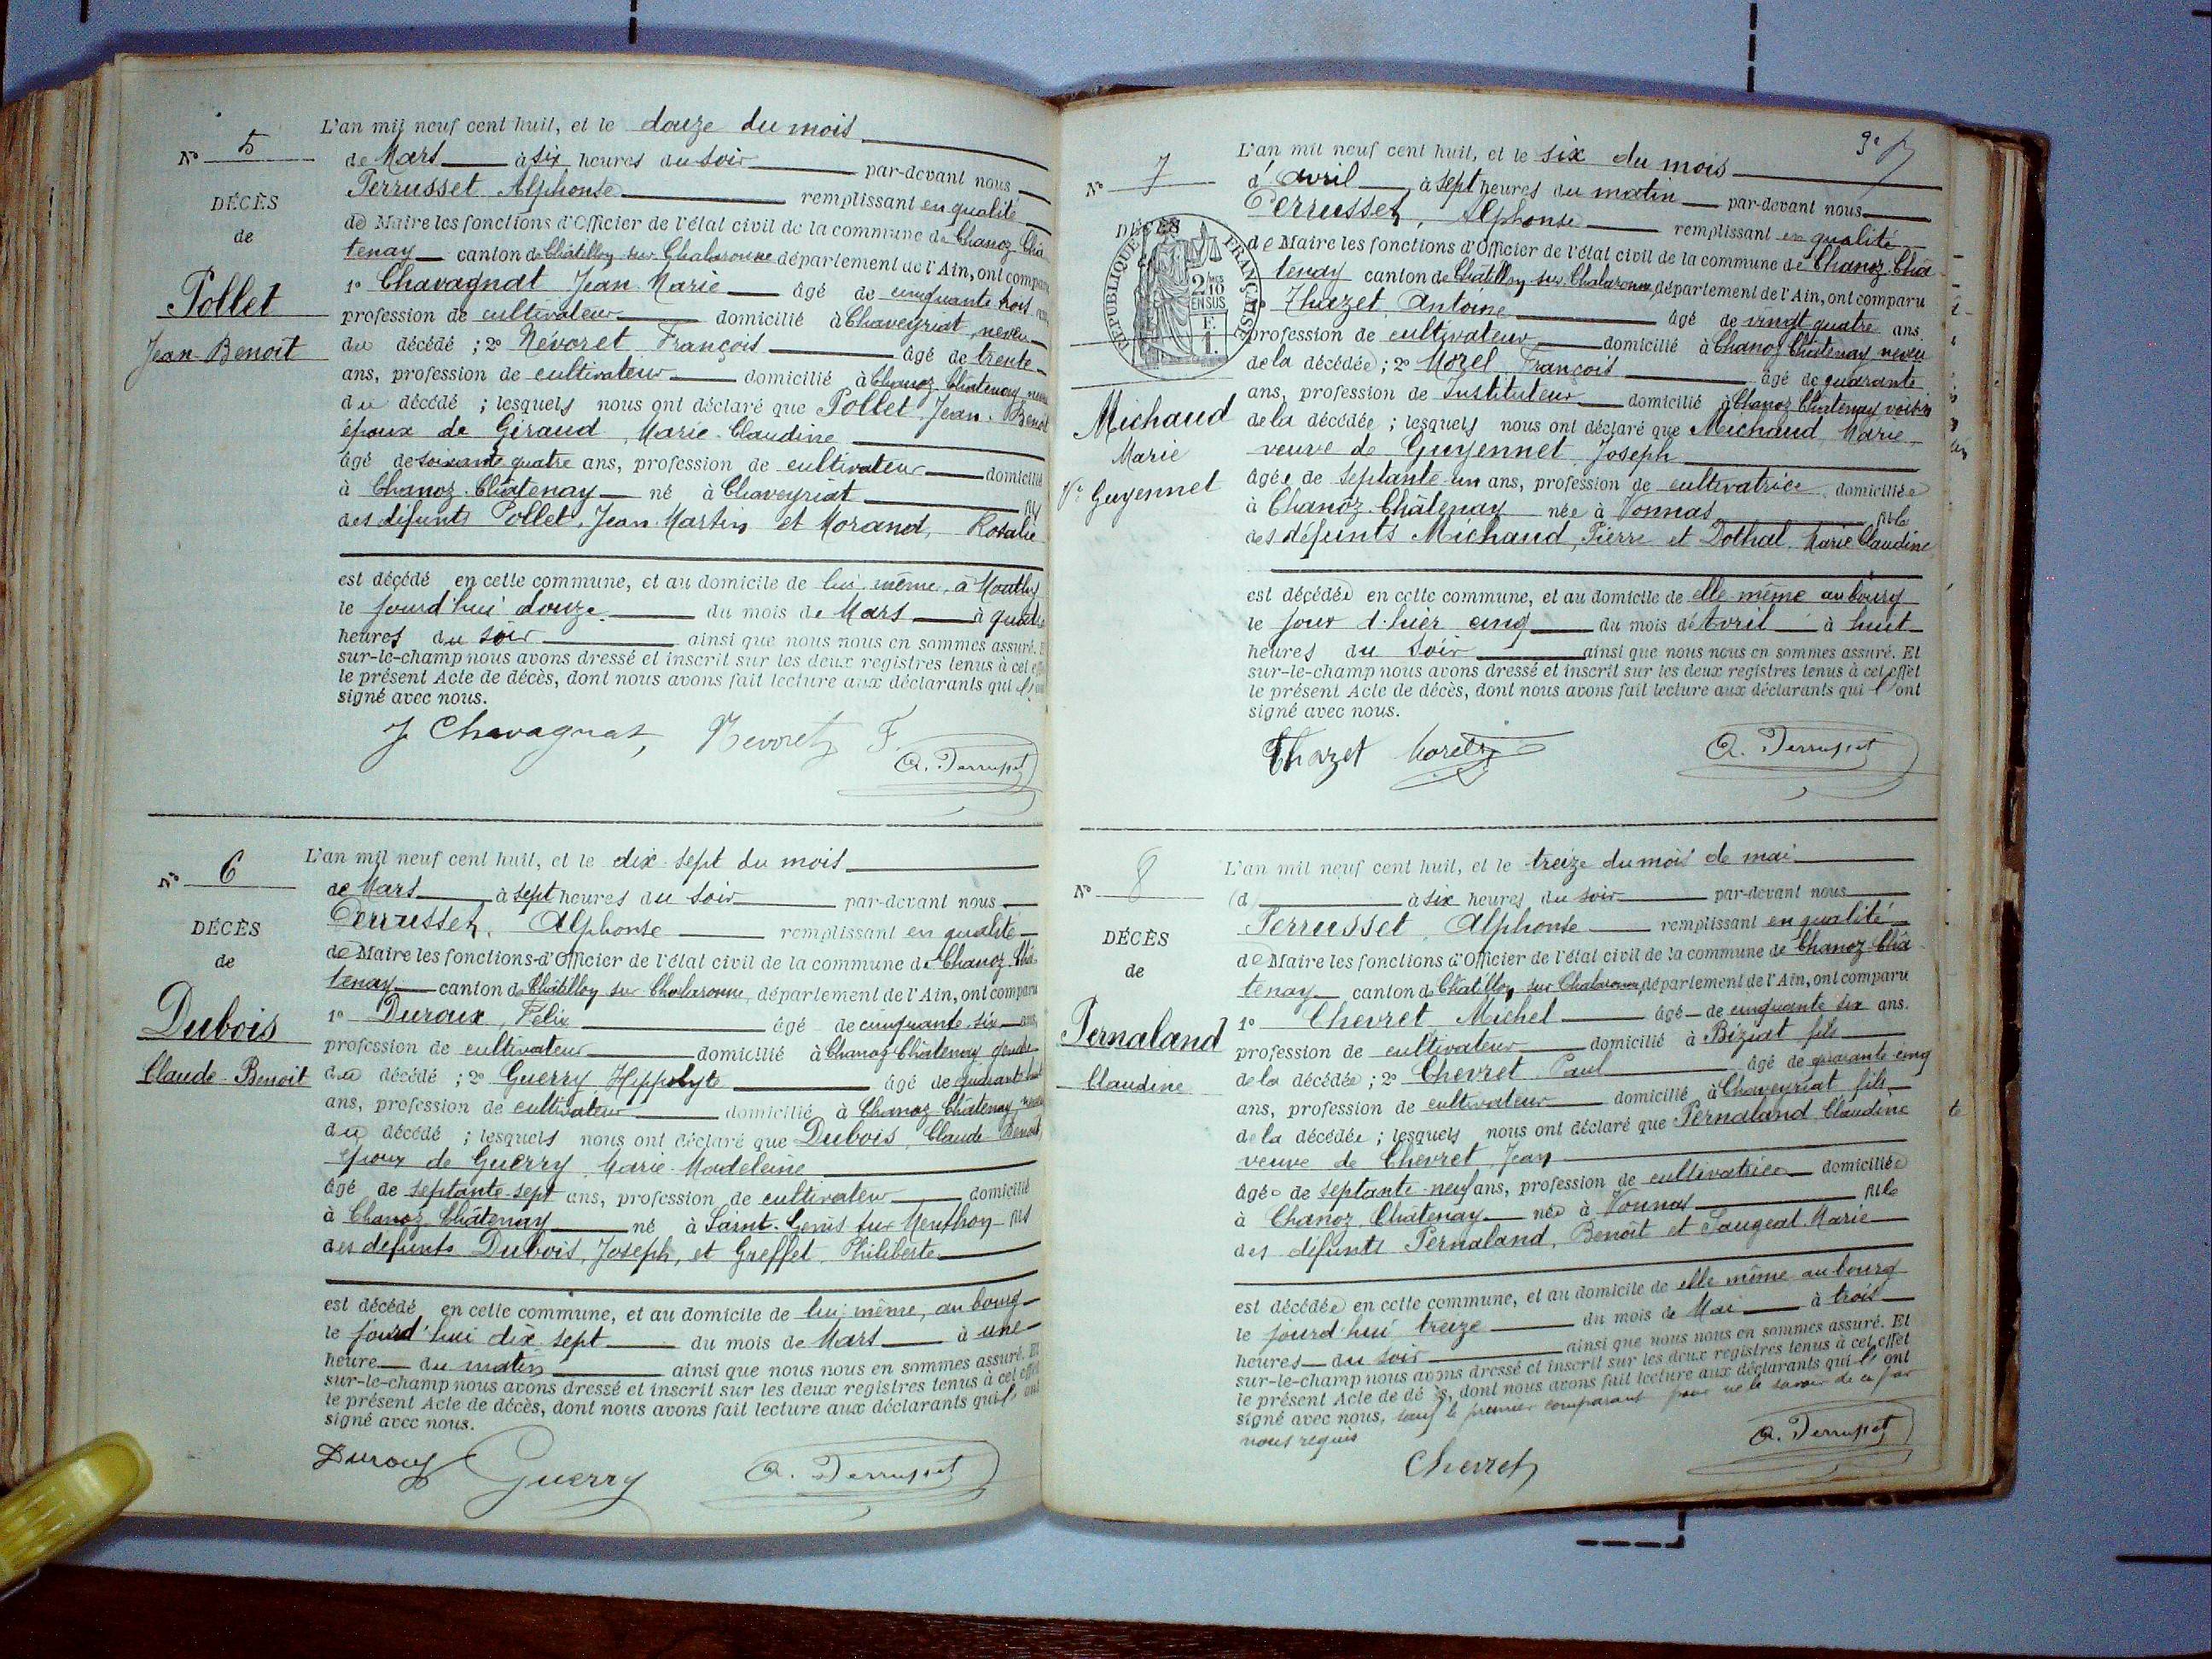 N° 5
DÉCÈS
de
Pollet
Jean-Benoit
L'an mil neuf cent huit, et le douze du mois
de Mars à six heures du soir par-devant nous
Perrusset Alphonse remplissant en qualité
de Maire les fonctions d'Officier de l'état civil de la commune de Chanoz-Châ
tenay canton de Châtillon sur Chalaronne département de l'Ain, ont comparu
1° Chavagnat Jean Marie âgé de cinquante trois
profession de cultivateur domicilié à Chaveyriat, neveu
du décédé ; 2° Névoret François âgé de trente
ans, profession de cultivateur domicilié à Chanoz Châtenay neveu
du décédé ; lesquels nous ont déclaré que Pollet Jean-Benoit
époux de Giraud, Marie-Claudine
âgé de soixante quatre ans, profession de cultivateur domicilié
à Chanoz-Châtenay né à Chaveyriat fils
des défunts Pollet, Jean-Martin et Morand, Rosalie
est décédé en cette commune, et au domicile de lui-même, à
le jourd'hui douze du mois de Mars à quatre
heures du soir ainsi que nous nous en sommes assuré. Et
sur-le-champ nous avons dressé et inscrit sur les deux registres tenus à cet effet
le présent Acte de décès, dont nous avons fait lecture aux déclarants qui l'ont
signé avec nous.
J Chavagnat, Nevoret F.
A. Perrusset
N° 6
DÉCÈS
de
Dubois
Claude-Benoit
L'an mil neuf cent huit, et le dix-sept du mois
de Mars à sept heures du soir par-devant nous
Perrusset, Alphonse remplissant en qualité
de Maire les fonctions d'Officier de l'état civil de la commune de Chanoz-Châ
tenay canton de Châtillon sur Chalaronne, département de l'Ain, ont comparu
1° Duroux, Félix âgé de cinquante six ans,
profession de cultivateur domicilié à Chanoz-Châtenay gendre
du décédé ; 2° Guerry Hippolyte âgé de quarante
ans, profession de cultivateur domicilié à Chanoz Châtenay, neveu
du décédé ; lesquels nous ont déclaré que Dubois, Claude Benoit,
époux de Guerry Marie-Madeleine
âgé de septante-sept ans, profession de cultivateur domicilié
à Chanoz-Châtenay né à Saint-Genis sur Menthon fils
des défunts Dubois, Joseph, et Greffet, Philiberte
est décédé en cette commune, et au domicile de lui-même, au bourg
le jourd'hui dix sept du mois de Mars à une
heure du matin ainsi que nous nous en sommes assuré. Et
sur-le-champ nous avons dressé et inscrit sur les deux registres tenus à cet effet
le présent Acte de décès, dont nous avons fait lecture aux déclarants qui l'ont
signé avec nous.
Duroux Guerry A. Perrusset
N° 7
DÉCÈS
RÉPUBLIQUE FRANÇAISE
2/10 EN SUS
E. 1.
Michaud
Marie
Ve Guyennet
L'an mil neuf cent huit, et le six du mois
d'Avril à sept heures du matin par-devant nous
Perrusset, Alphonse remplissant en qualité
de Maire les fonctions d'Officier de l'état civil de la commune de Chanoz-Châ
tenay canton de Châtillon sur Chalaronne, département de l'Ain, ont comparu
Thazet, Antoine âgé de vingt quatre ans
profession de cultivateur domicilié à Chanoz Châtenay neveu
de la décédée ; 2° Morel François âgé de quarante
ans, profession de Instituteur domicilié à Chanoz Châtenay voisin
de la décédée ; lesquels nous ont déclaré que Michaud, Marie
veuve de Guyennet Joseph
âgée de septante-un ans, profession de cultivatrice domiciliée
à Chanoz-Châtenay née à Vonnas fille
des défunts Michaud, Pierre et Dothal Marie Claudine
est décédée en cette commune, et au domicile de elle même au bourg
le jour d'hier cinq du mois d'Avril à huit
heures du soir ainsi que nous nous en sommes assuré. Et
sur-le-champ nous avons dressé et inscrit sur les deux registres tenus à cet effet
le présent Acte de décès, dont nous avons fait lecture aux déclarants qui l'ont
signé avec nous.
Thazet Morel A. Perrusset
N° 8
DÉCÈS
de
Pernaland
Claudine
L'an mil neuf cent huit, et le treize du mois de mai
(d à six heures du soir par-devant nous
Perrusset, Alphonse remplissant en qualité
de Maire les fonctions d'Officier de l'état civil de la commune de Chanoz-Châ
tenay canton de Châtillon sur Chalaronne, département de l'Ain, ont comparu
1° Chevret Michel âgé de cinquante six ans.
profession de cultivateur domicilié à Biziat fils
de la décédée ; 2° Chevret Paul âgé de quarante cinq
ans, profession de cultivateur domicilié à Chaveyriat, fils
de la décédée ; lesquels nous ont déclaré que Pernaland Claudine
veuve de Chevret Jean
âgée de septante-neuf ans, profession de cultivatrice domiciliée
à Chanoz Châtenay née à Vonnas fille
des défunts Pernaland, Benoît et Saugeat Marie
est décédée en cette commune, et au domicile de elle même au bourg
le jourd'hui treize du mois de Mai à trois
heures du soir ainsi que nous nous en sommes assuré. Et
sur-le-champ nous avons dressé et inscrit sur les deux registres tenus à cet effet
le présent Acte de décès, dont nous avons fait lecture aux déclarants qui l'ont
signé avec nous, sauf le premier comparant pour ne le savoir de ce par
nous requis
Chevret A. Perrusset